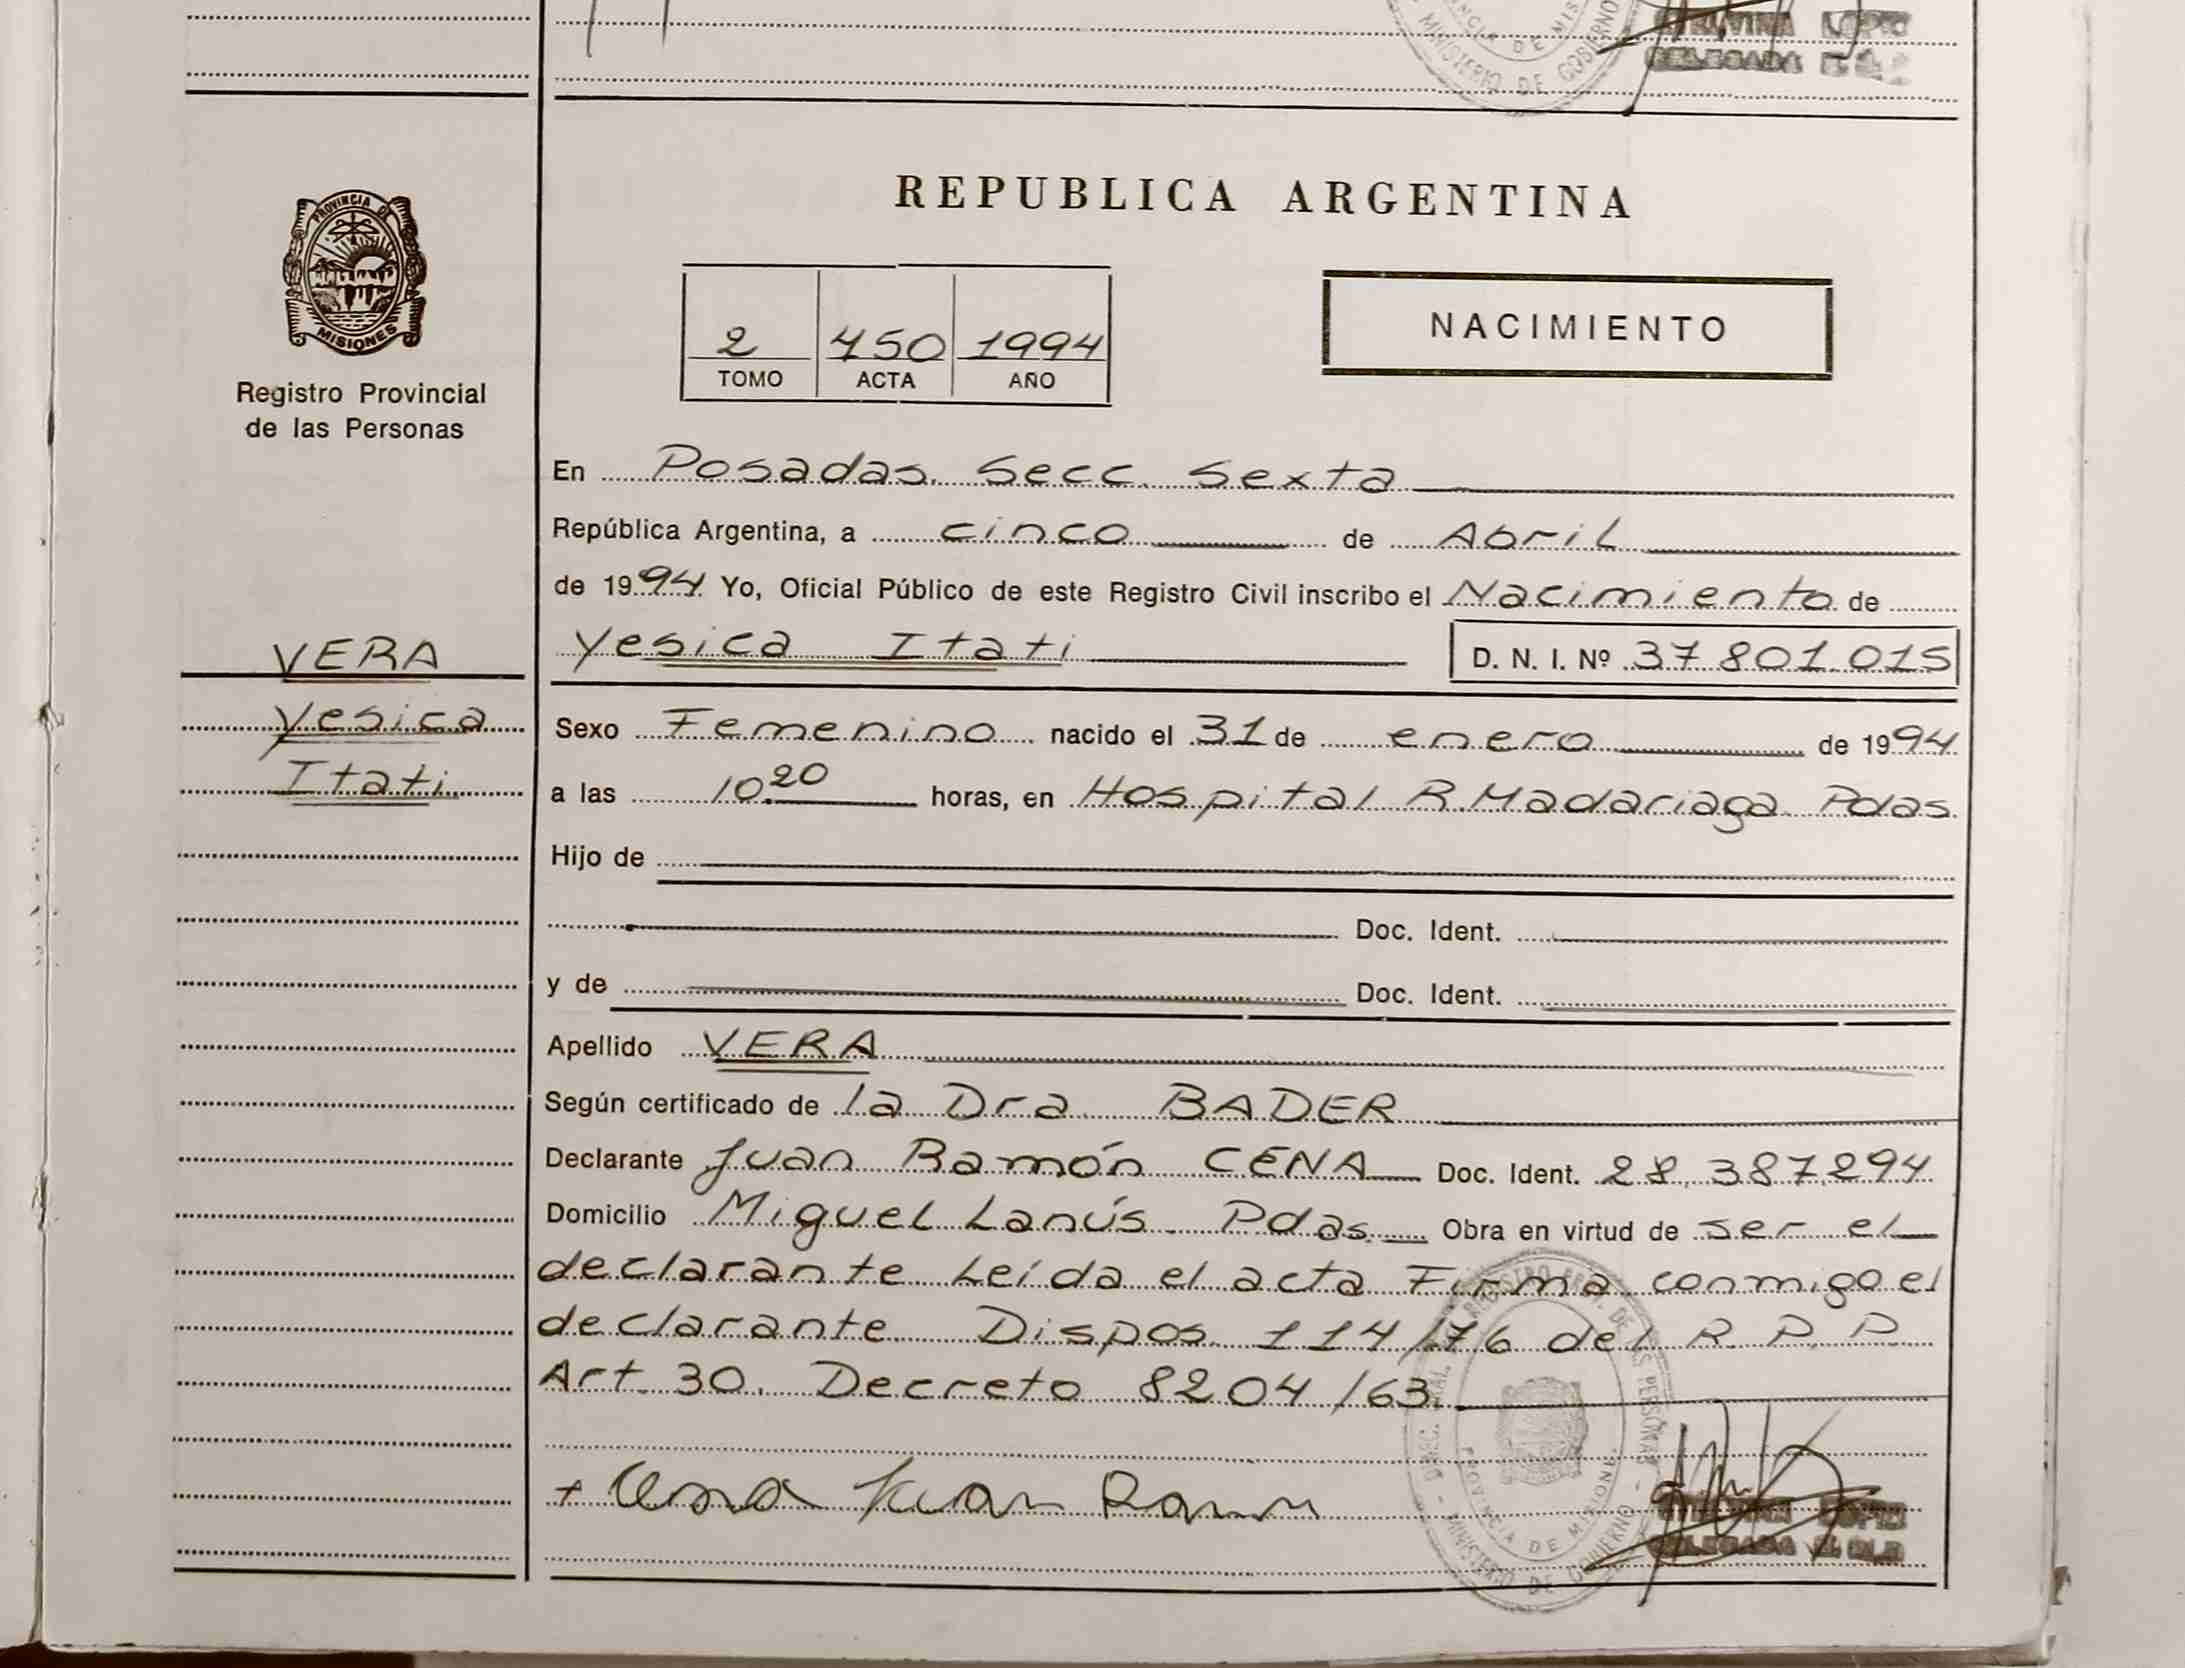 MINISTERIO DE GOBIERNO
REPUBLICA ARGENTINA
PROVINCIA DE
MISIONES
Registro Provincial
de las Personas
2 450 1994
TOMO ACTA AÑO
NACIMIENTO
En Posadas. Secc. Sexta
República Argentina, a cinco de Abril
de 1994 Yo, Oficial Público de este Registro Civil inscribo el Nacimiento de
VERA
Yesica Itati D. N. I. Nº 37 801.015
Yesica
Sexo Femenino nacido el 31 de enero de 1994
Itati
a las 10.20 horas, en Hospital R. Madariaga Pdas.
Hijo de
Doc. Ident.
y de Doc. Ident.
Apellido VERA
Según certificado de la Dra BADER
Declarante Juan Ramón CENA Doc. Ident. 28.387.294
Domicilio Miguel Lanús. Pdas. Obra en virtud de ser el
declarante Leída el acta Firma conmigo el
declarante Dispos. 114/76 del R. P. P.
Art. 30. Decreto 8204/63.
+ Cena Juan Ramon
PROVINCIA DE MISIONES
MINISTERIO DE GOBIERNO